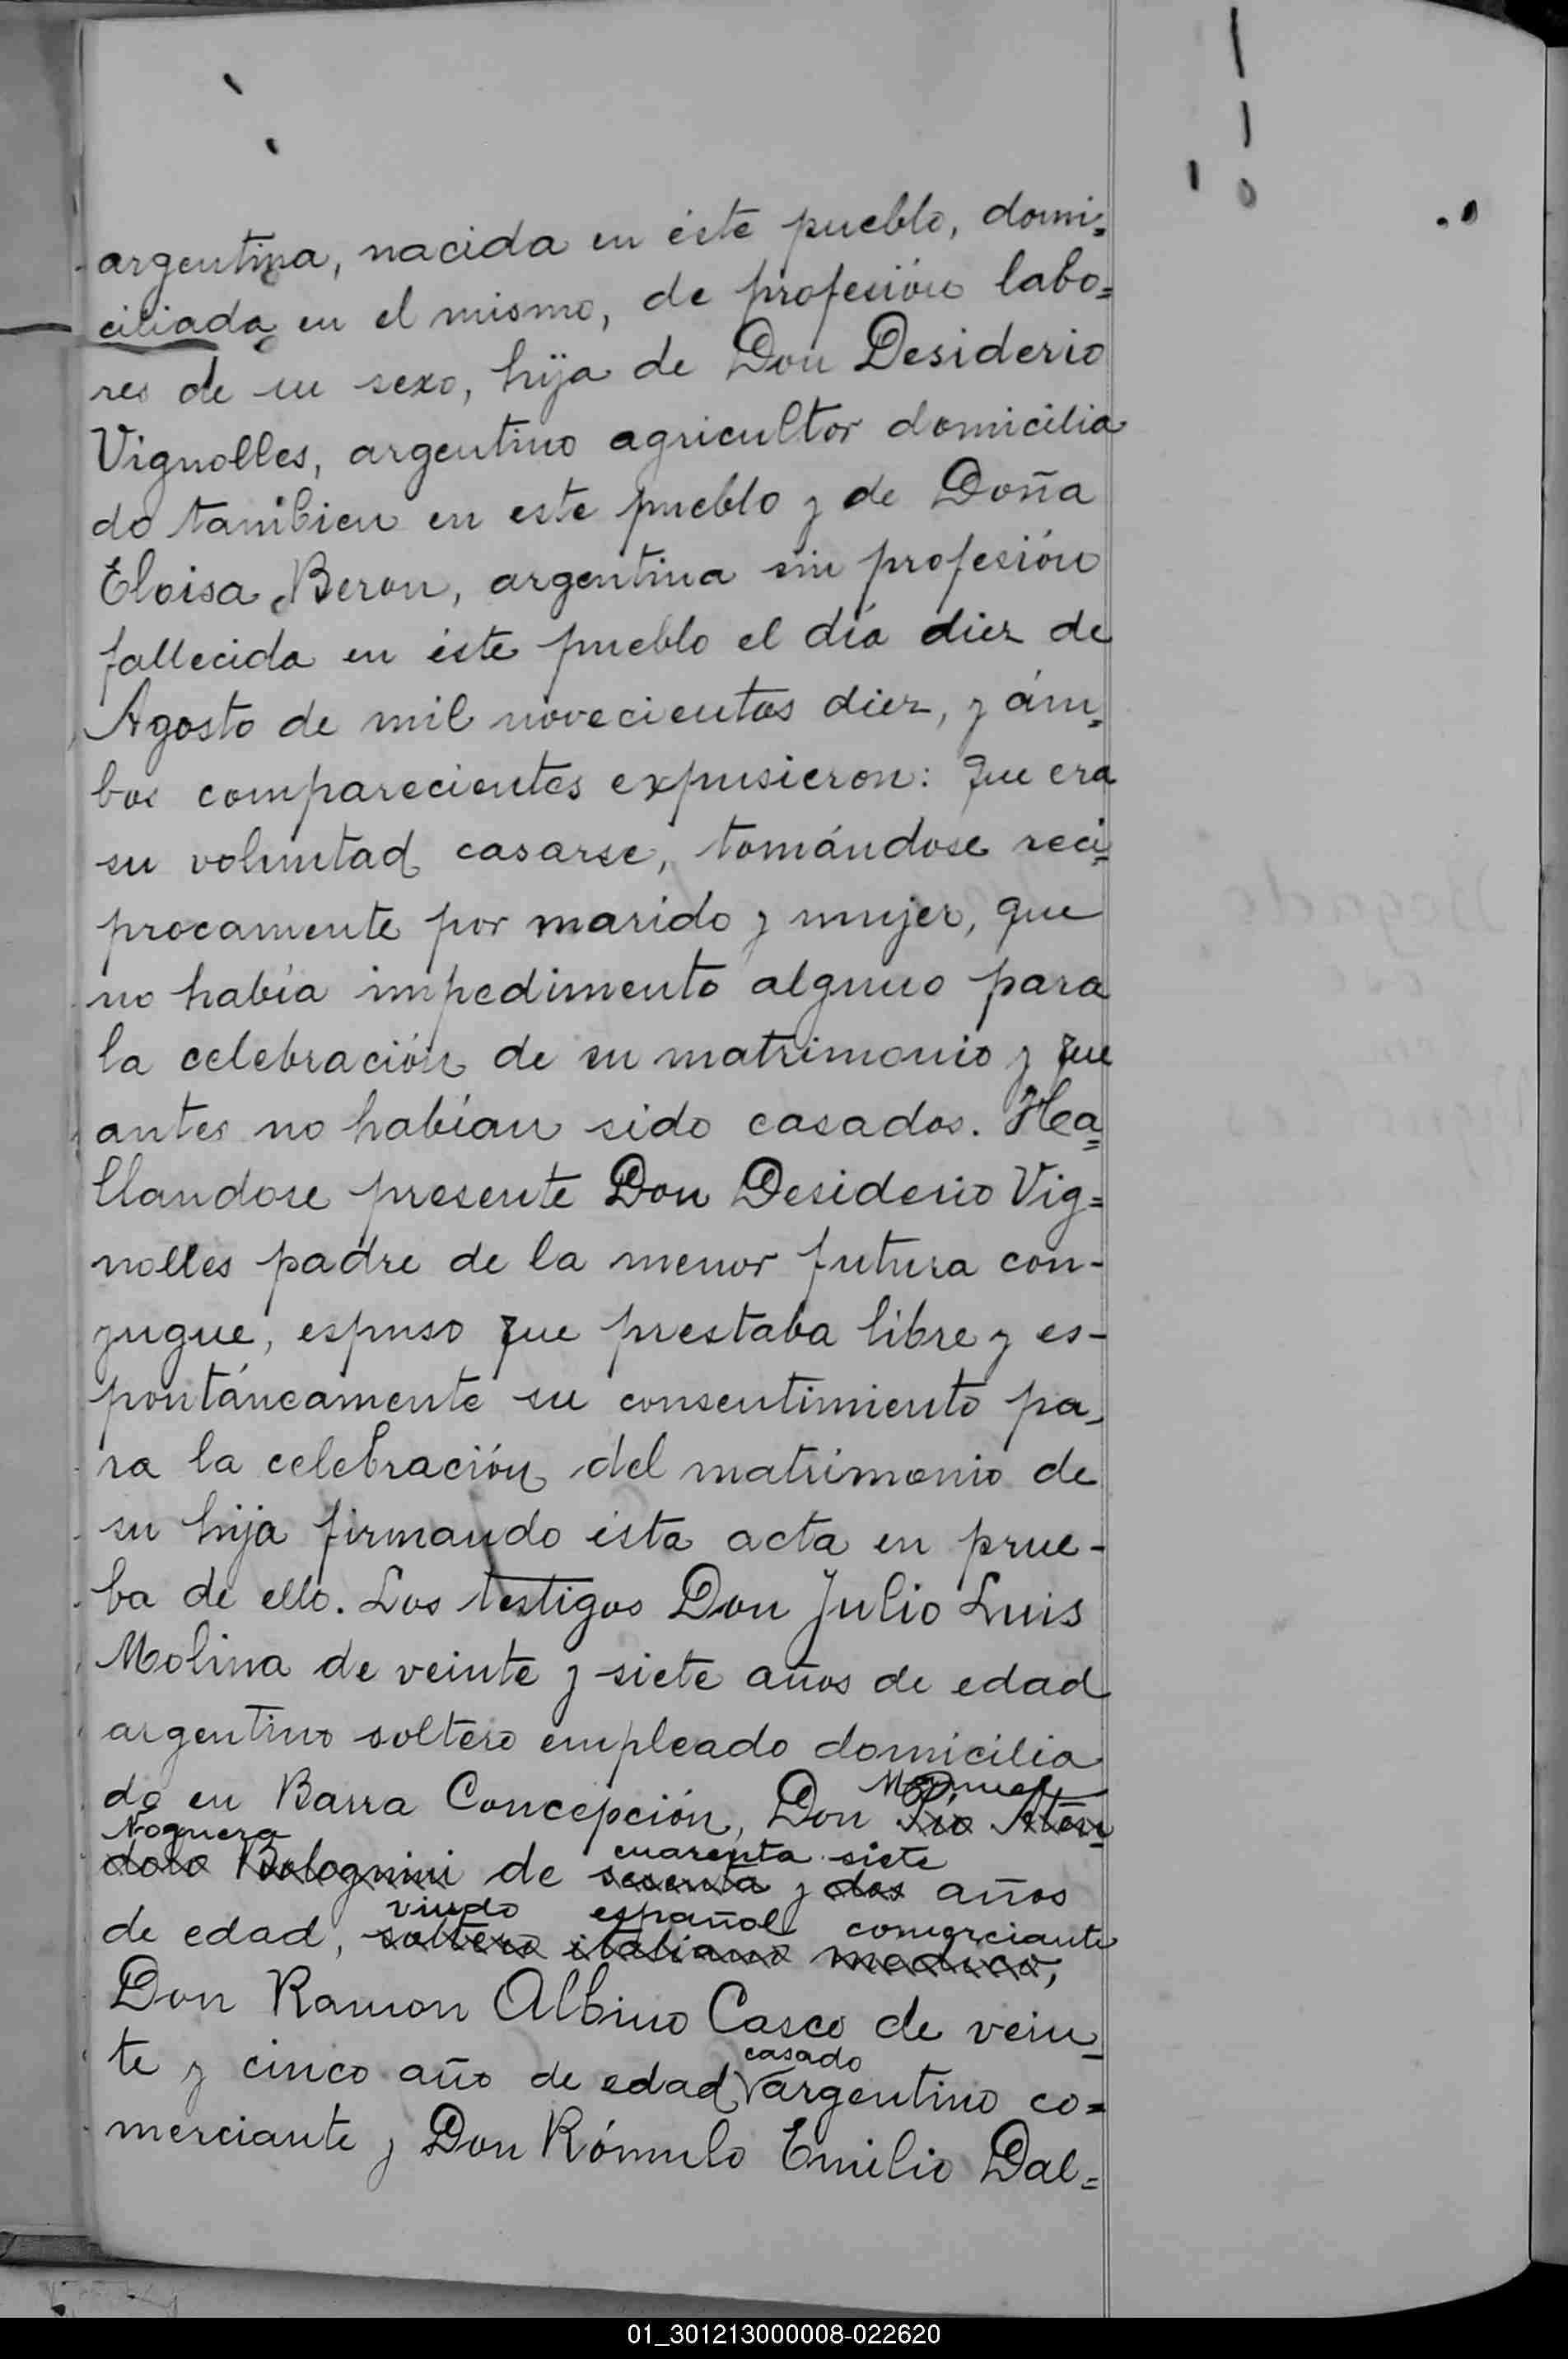 argentina, nacida en éste pueblo, domi=
ciliada en el mismo, de profesión labo=
res de su sexo, hija de Don Desiderio
Vignolles, argentino agricultor domicilia
do tambien en este pueblo y de Doña
Eloisa Beron, argentina sin profesión
fallecida en éste pueblo el día diez de
Agosto de mil novecientos diez, y ám=
bos comparecientes expusieron: que era
su voluntad casarse, tomándose reci=
procamente por marido y mujer, que
no había impedimento alguno para
la celebración de su matrimonio y que
antes no habían sido casados. Ha=
llandose presente Don Desiderio Vig=
nolles padre de la menor futura con-
yugue, espuso que prestaba libre y es-
pontáneamente su consentimiento pa-
ra la celebración del matrimonio de
su hija firmando ésta acta en prue-
ba de ello. Los testigos Don Julio Luis
Molina de veinte y siete años de edad
argentino soltero empleado domicilia
Manuel
do en Barra Concepción, Don Pio
Noguera cuarenta siete
Bolognini de sesenta y dos años
viudo español comerciante
de edad, soltero italiano medico,
Don Ramon Albino Casco de vein-
casado
te y cinco año de edad argentino co=
merciante y Don Rómulo Emilio Dal=
01_301213000008-022620